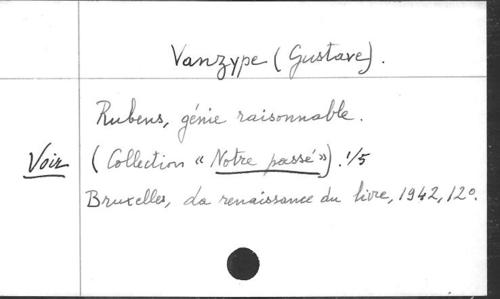 Vanzype (Gustave).
Rubens, génie raisonnable.
Voir (Collection « Notre passé »). 1/5
Bruxelles, La renaissance du livre, 1942, 12°.